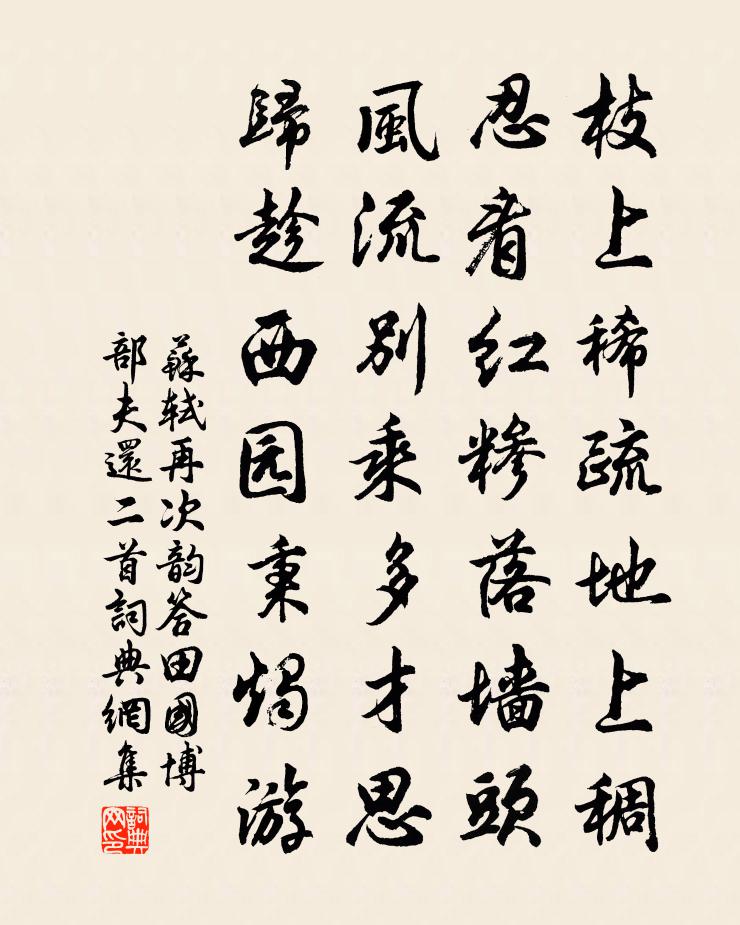 枝上稀疏地上稠
忍看红糁落墙頭
風流別乘多才思
歸趁西园秉燭游
蘇軾再次韵答田國博
部夫還二首詞典網集
詞典网印